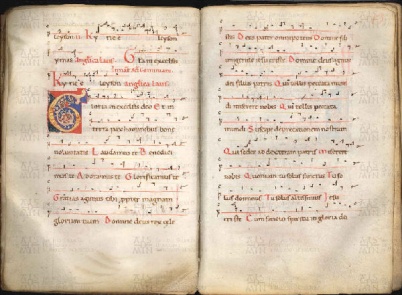 leyson iii Ky rie e leyson
ymas angelica laus. G lria in excelsis
Ky rie e leyson angelica laus.
loria in excelsis deo Et in
terra pax hominibus bone
voluntatis Laudamus te Benedici
mus te Adoramus te Glorificamus te
Gratias agimus tibi propter magnam
gloriam tuam Domine deus rex cele
stis Deus pater omnipotens Domine fili
unigenite iesu christe Domine deus agnus
dei filius patris Qui tollis peccata mun
di miserere nobis Qui tollis peccata
mundi Suscipe deprecationem nostram
Qui sedes ad dexteram patris Miserere
nobis Quoniam tu solus sanctus Tu so
lus dominus Tu solus altissimus Iesu
christe Cum sancto spiritu in gloria de